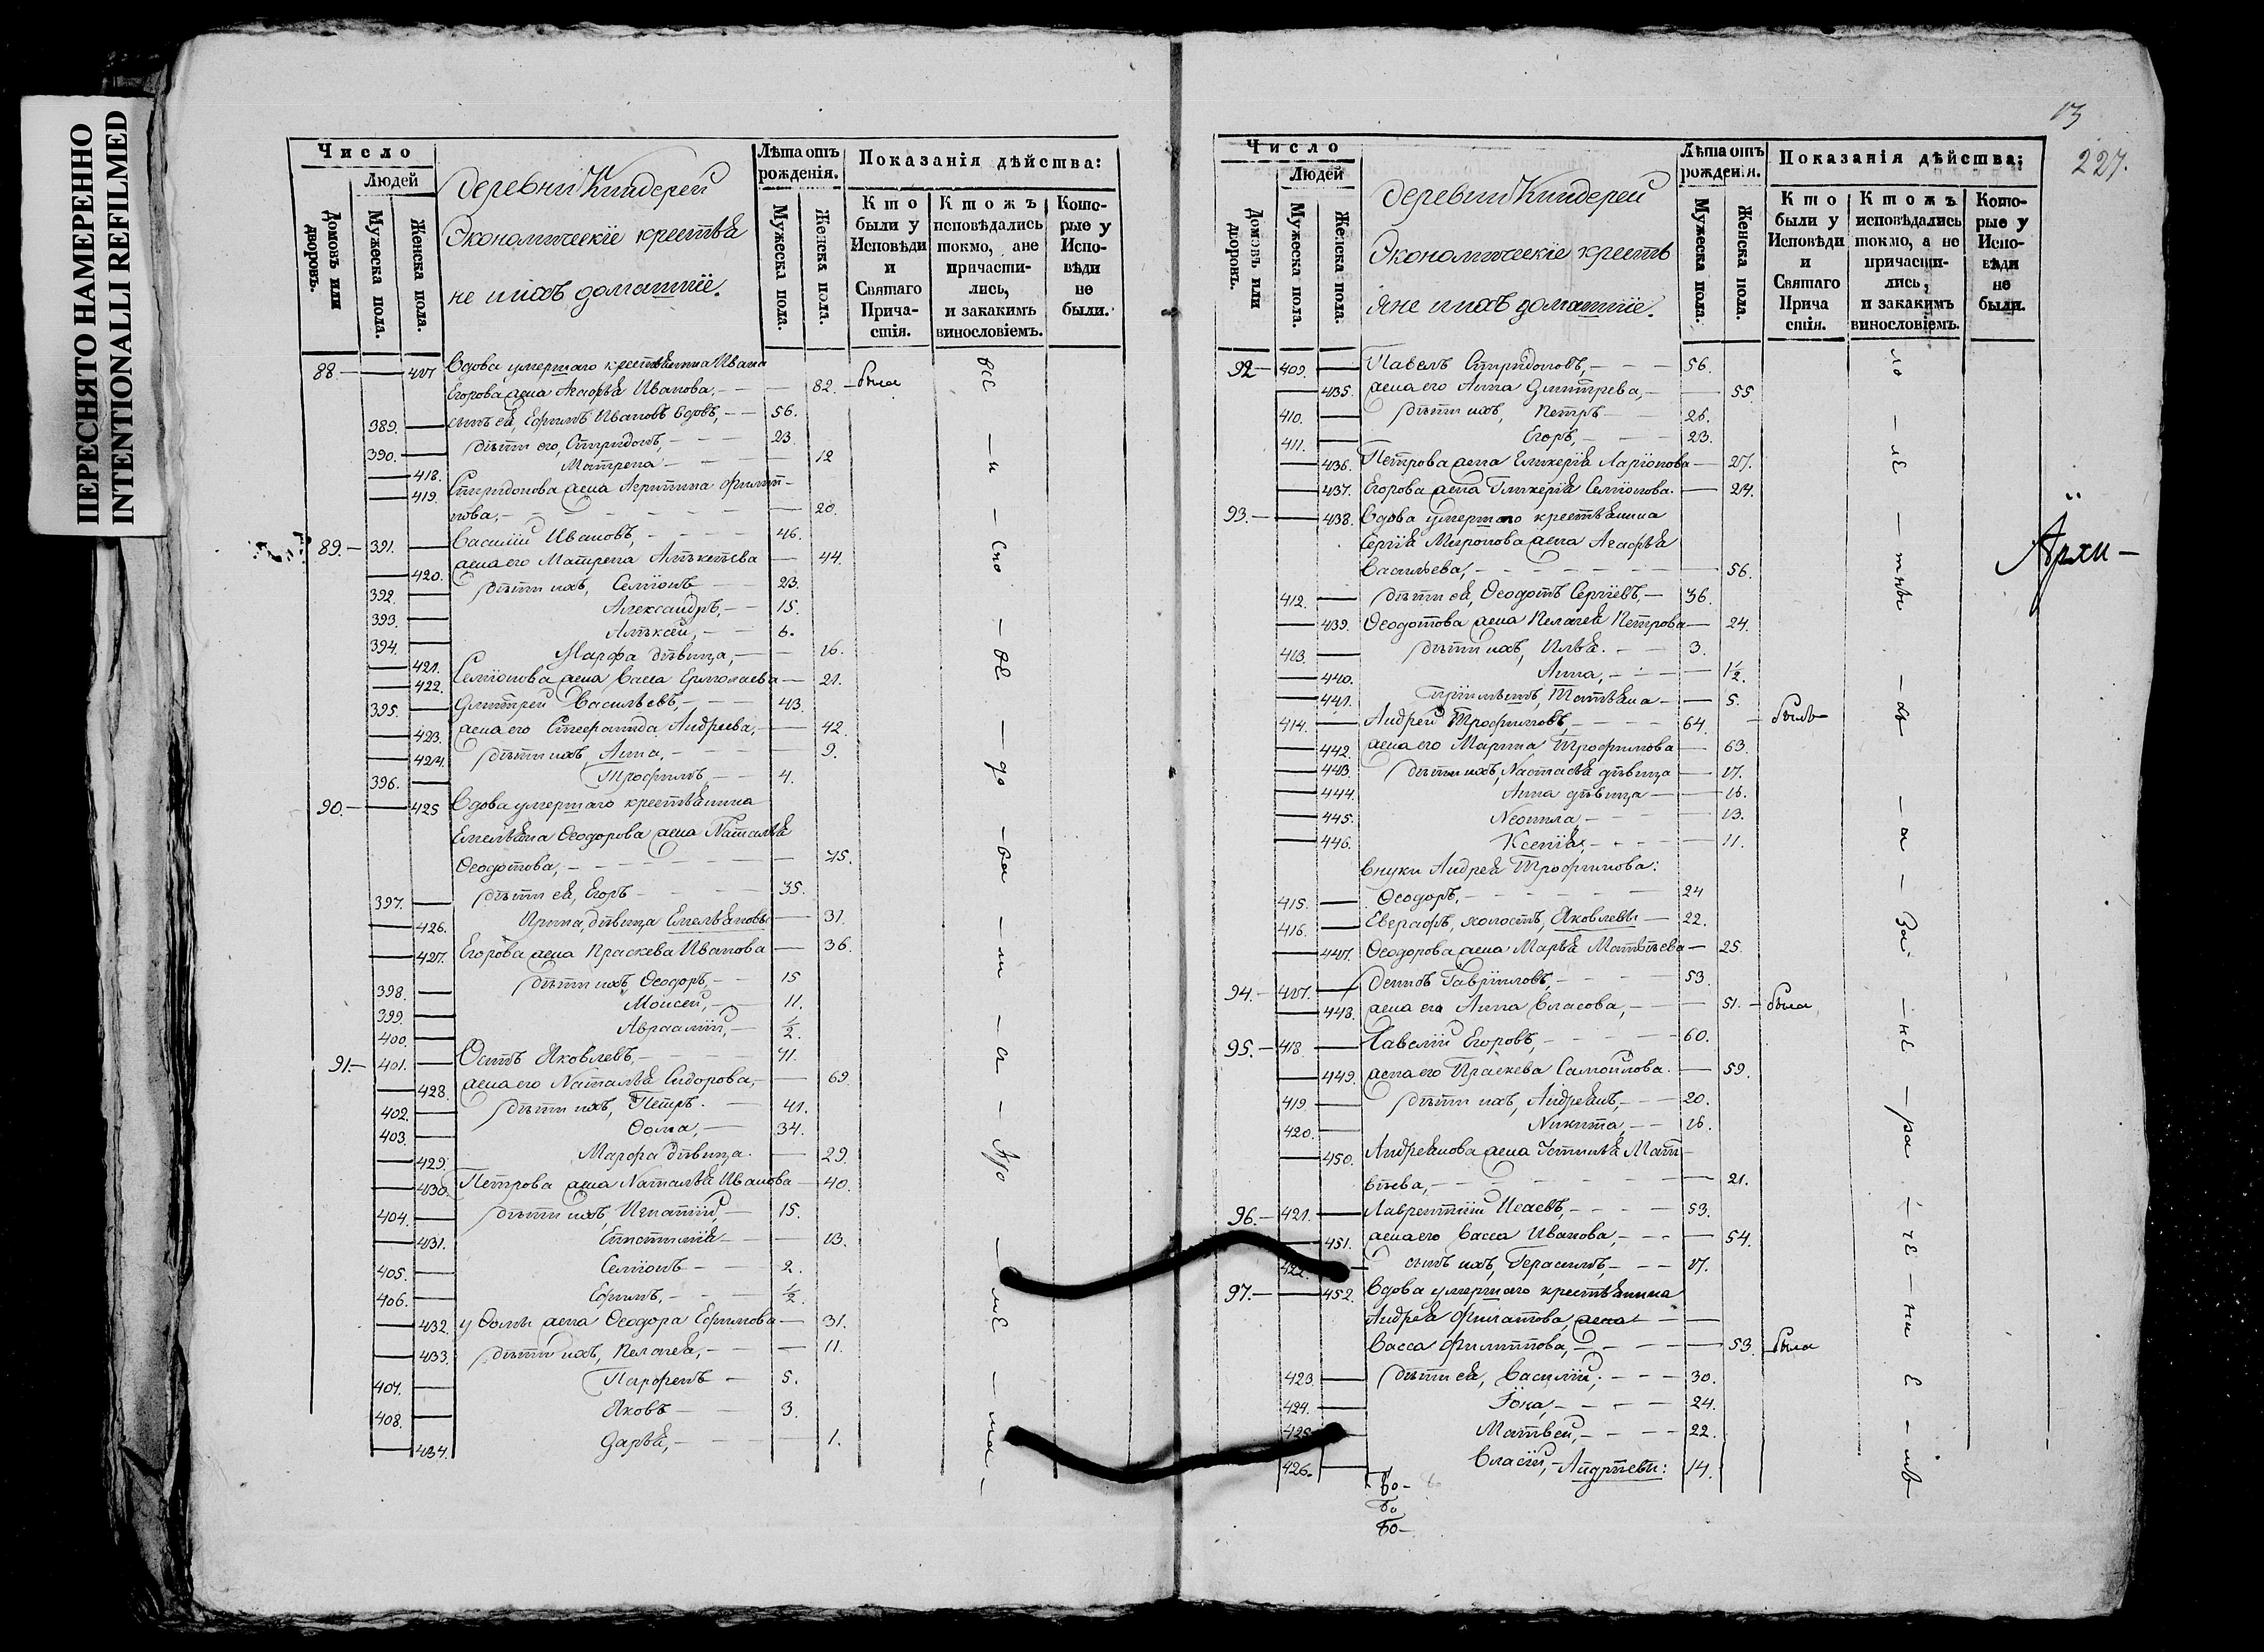 ПЕРЕСНЯТО НАМЕРЕННО
INTENTIONALLI REFILMED
Число
Людей
Домовъ или дворовъ.
Мужеска пола.
Женска пола.
деревни Киндерей
Экономическіе крестья
не ихъ домашніе.
Лѣта отъ рожденія.
Мужеска пола.
Женска пола.
Показанія дѣйства:
Кто были у Исповѣди и Святаго Прича- стія.
Ктожъ исповѣдались токмо, ане причасти- лись, и закакимъ винословіемъ.
Кото- рые у Испо- вѣди не были.
88. — 417 Вдова умершаго крестьянина Ивана
Егорова жена Агафья Иванова, — 82. — была
389. сынъ ея, Ефимъ Ивановъ вдовъ, — 56.
390. дѣти его, Спиридонъ, — 23.
418. Матрена — 12
419. Спиридонова жена Агрипина Филип-
пова, — 20.
89. — 391. Василій Ивановъ — 46.
420. жена его Матрена Алѣксѣева — 44.
392. дѣти ихъ, Семіонъ — 23.
393. Александръ, — 15.
394. Алѣксѣй, — 6.
421. Марфа дѣвица, — 16.
422. Семіонова жена Васса Ермолаева — 21.
395. Дмитрей Васильевъ, — 43.
423. жена его Стефанида Андреева, — 42.
424. дѣти ихъ, Анна, — 9.
396. Трофимъ, — 4.
90. — 425 Вдова умершаго крестьянина
Емельяна Ѳеодорова жена Наталья
Ѳеодотова, — 75.
397. дѣти ея, Егоръ — 35.
426. Ирина, дѣвица Емельяновы — 31.
427. Егорова жена Праскева Иванова — 36.
398. дѣти ихъ Ѳеодоръ, — 15
399. Моисей, — 11.
400. Авраамій, — ½.
91. — 401. Осипъ Яковлевъ, — 71.
428. жена его Наталья Сидорова, — 69.
402. дѣти ихъ, Петръ. — 41.
403. Ѳома, — 34.
429. Марфа дѣвица. — 29.
430. Петрова жена Наталья Иванова — 40.
404. дѣти ихъ, Игнатій, — 15.
431. Епистимія — 13.
405. Семіонъ — 2.
406. Ефимъ, — ½.
432. у Ѳомы жена Ѳеодора Ефимова — 31.
433. дѣти ихъ, Пелагея, — 11.
407. Парфенъ — 5.
408. Яковъ — 3.
434. Дарья, — 1.
все — и — спо — ве — до — ва — ли — с — Аро — ме — на —
13
227.
Число
Людей
Домовъ или дворовъ.
Мужеска пола.
Женска пола.
деревни Киндерей
Экономическіе кресть
яне ихъ домашніе.
Лѣта отъ рожденія.
Мужеска пола.
Женска пола.
Показанія дѣйства:
Кто были у Исповѣди и Святаго Прича стія.
Ктожъ исповѣдались токмо, а не причасти- лись, и закакимъ винословіемъ.
Кото- рые у Испо- вѣди не были.
92 — 409. Павелъ Спиридоновъ, — 56.
435. жена его Анна Дмитрева, — 55.
410. дѣти ихъ, Петръ — 26.
411. Егоръ, — 23.
436. Петрова жена Гликерія Ларіонова — 27.
437. Егорова жена Гликерія Семіонова. — 24.
93. — 438. Вдова умершаго крестьянина
Сергія Миронова жена Агафья
Васильева, — 56.
412. дѣти ея, Ѳеодотъ Сергіевъ, — 36.
439. Ѳеодотова жена Пелагея Петрова — 24.
413. дѣти ихъ, Илья. — 3.
440. Анна, — 1½.
441. Татьяна — 5.
414. Андрей Трофимовъ, — 64. — былъ
442. жена его Марина Трофимова — 63.
443. дѣти ихъ, Настасья дѣвица — 17.
444. Анна дѣвица — 16.
445. Неонила — 13.
446. Ксенія, — 11.
внуки Андрея Трофимова:
415. Ѳеодоръ, — 24
416. Еверафъ, холостъ, Яковлевы — 22.
447. Ѳеодорова жена Марья Матвѣева — 25.
94. — 417. Демидъ Гавриловъ, — 53.
448. жена его Анна Власова, — 51. — была
95. — 418 Савелій Егоровъ, — 60.
449. жена его Праскева Самойлова. — 59.
419 дѣти ихъ, Андреянъ, — 20.
420. Никита, — 16.
450. Андреянова жена Устинья Мат-
вѣева, — 21.
96. — 421. Лаврентій Исаевъ, — 53.
451. жена его Васса Иванова, — 54.
422. сынъ ихъ, Герасимъ, — 17.
97. — 452. Вдова умершаго крестьянина
Андрея Филатова, жена —
Васса Филиппова, — 53. была
423. дѣти ея, Василій, — 30.
424. Фока, — 24.
425. Матвей, — 22.
426. Власій, — Андреевы: 14.
ло — ле — тны — въ — а — за — не — ра — че — ни е — мъ
Архи —
Бо —
Бо
Бо —